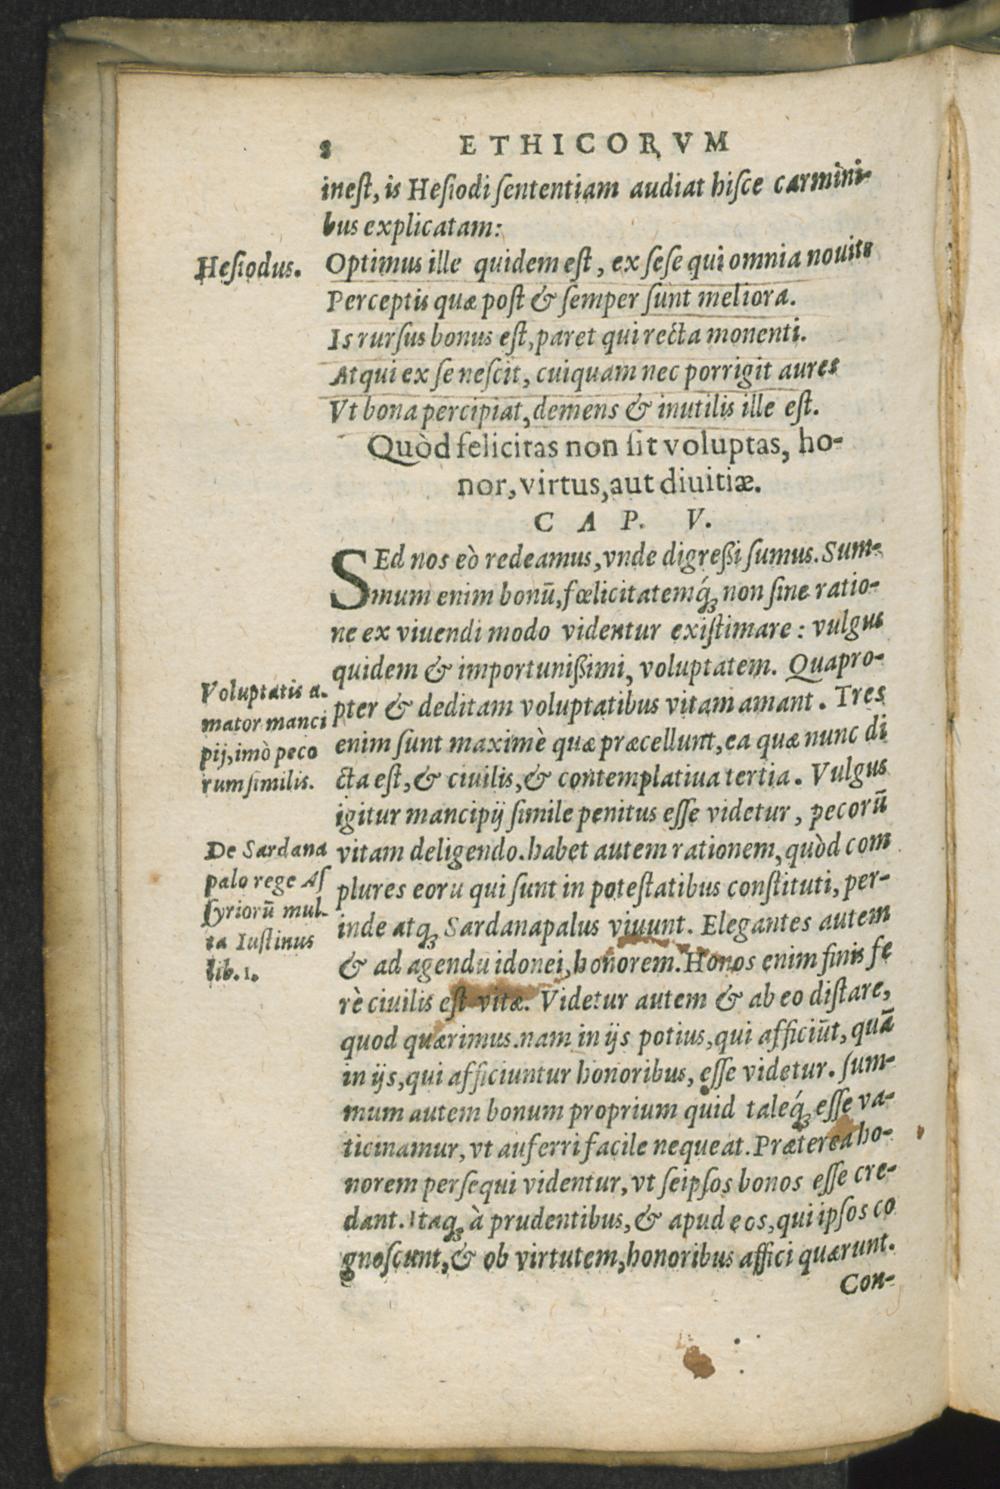 8 ETHICORVM
inest, is Hesiodi sententiam audiat hisce carmini-
bus explicatam:
Hesiodus.
Optimus ille quidem est, ex sese qui omnia nouit:
Perceptis quæ post & semper sunt meliora.
Is rursus bonus est, paret qui recta monenti.
Atqui ex se nescit, cuiquam nec porrigit aures
Vt bona percipiat, demens & inutilis ille est.
Quòd felicitas non sit voluptas, ho-
nor, virtus, aut diuitiæ.
CAP. V.
SEd nos eò redeamus, vnde digreßi sumus. Sum-
mum enim bonū, fœlicitatemq́ꝫ non sine ratio-
ne ex viuendi modo videntur existimare: vulgus
quidem & importunißimi, voluptatem. Quapro-
pter & deditam voluptatibus vitam amant. Tres
enim sunt maximè quæ præcellunt, ea quæ nunc di
cta est, & ciuilis, & contemplatiua tertia. Vulgus
igitur mancipij simile penitus esse videtur, pecorū
vitam deligendo. habet autem rationem, quòd com
plures eoru qui sunt in potestatibus constituti, per-
inde atqꝫ Sardanapalus viuunt. Elegantes autem
& ad agendu idonei, honorem. Honos enim finis fe
rè ciuilis est vitæ. Videtur autem & ab eo distare,
quod quærimus. nam in ijs potius, qui afficiūt, quā
in ijs, qui afficiuntur honoribus, esse videtur. sum-
mum autem bonum proprium quid taleq́ꝫ esse va-
ticinamur, vt auferri facile nequeat. Præterea ho-
norem persequi videntur, vt seipsos bonos esse cre-
dant. Itaqꝫ à prudentibus, & apud eos, qui ipsos co
gnoscunt, & ob virtutem, honoribus affici quærunt.
Con-
Voluptatis a-
mator manci
pij, imò peco
rum similis.
De Sardana
palo rege As
syriorū mul-
ta Iustinus
lib. 1.